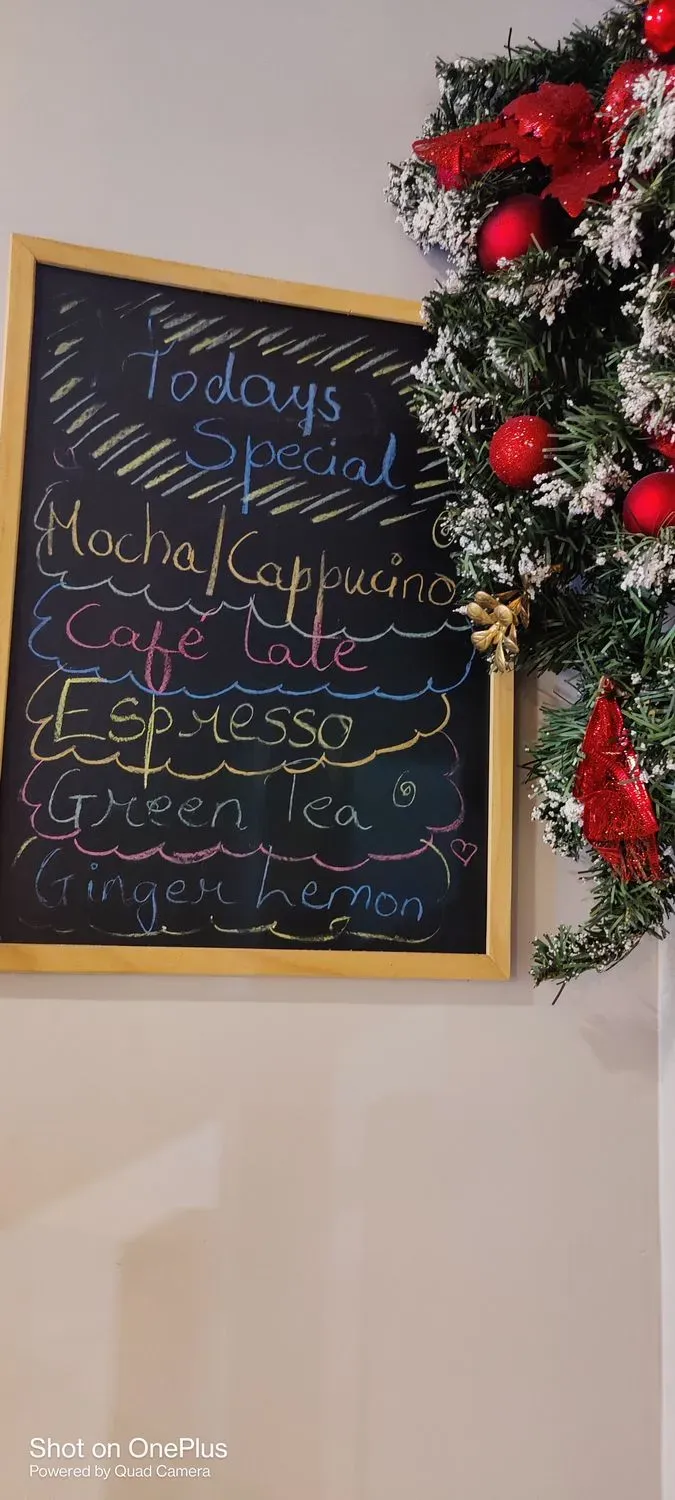 Todays
Special
Mocha/Cappucino
Café Late
Espresso
Green Tea
Ginger Lemon
Shot on OnePlus
Powered by Quad Camera